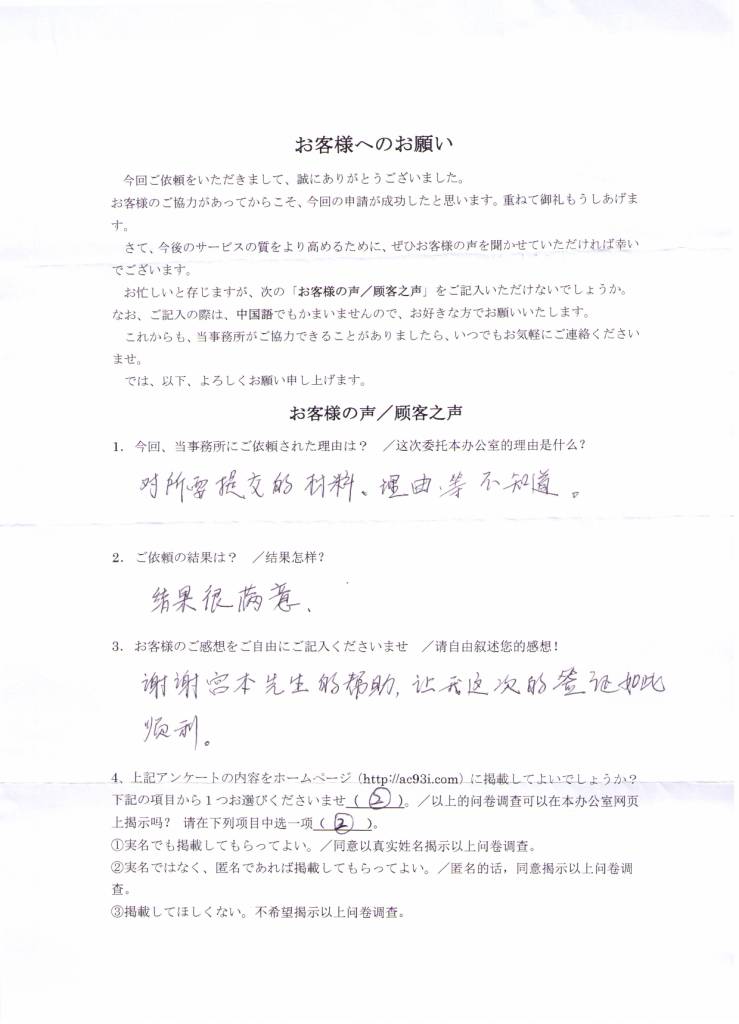 お客様へのお願い
今回ご依頼をいただきまして、誠にありがとうございました。
お客様のご協力があってからこそ、今回の申請が成功したと思います。重ねて御礼もうしあげま
す。
さて、今後のサービスの質をより高めるために、ぜひお客様の声を聞かせていただければ幸い
でございます。
お忙しいと存じますが、次の「お客様の声／顾客之声」をご記入いただけないでしょうか。
なお、ご記入の際は、中国語でもかまいませんので、お好きな方でお願いいたします。
これからも、当事務所がご協力できることがありましたら、いつでもお気軽にご連絡ください
ませ。
では、以下、よろしくお願い申し上げます。
お客様の声／顾客之声
1. 今回、当事務所にご依頼された理由は？ ／这次委托本办公室的理由是什么？
对所需提交的材料、理由、等不知道。
2. ご依頼の結果は？ ／结果怎样？
结果很满意、
3. お客様のご感想をご自由にご記入くださいませ ／请自由叙述您的感想！
谢谢宫本先生的帮助，让我这次的签证如此
顺利。
4、上記アンケートの内容をホームページ（http://ac93i.com）に掲載してよいでしょうか？
下記の項目から１つお選びくださいませ（ ② ）。／以上的问卷调查可以在本办公室网页
上揭示吗？ 请在下列项目中选一项（ ② ）。
①実名でも掲載してもらってよい。／同意以真实姓名揭示以上问卷调查。
②実名ではなく、匿名であれば掲載してもらってよい。／匿名的话，同意揭示以上问卷调
查。
③掲載してほしくない。不希望揭示以上问卷调查。